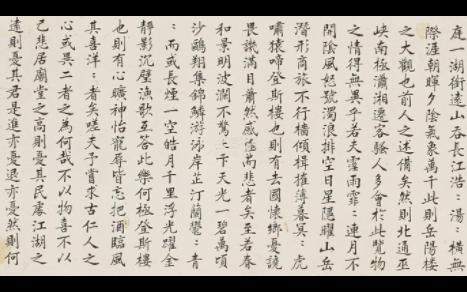 庭一湖銜遠山吞長江浩:湯:橫無
際涯朝暉夕陰氣象萬千此則岳陽樓
之大觀也前人之述備矣然則北通巫
峽南極瀟湘遷客騷人多會於此覽物
之情得無異乎若夫霪雨霏:連月不
開陰風怒號濁浪排空日星隱曜山岳
潛形商旅不行檣傾楫摧薄暮冥:虎
嘯猿啼登斯樓也則有去國懷鄉憂讒
畏譏滿目蕭然感極而悲者矣至若春
和景明波瀾不驚上下天光一碧萬頃
沙鷗翔集錦鱗游泳岸芷汀蘭鬱:青
:而或長煙一空皓月千里浮光躍金
靜影沉璧漁歌互答此樂何極登斯樓
也則有心曠神怡寵辱皆忘把酒臨風
其喜洋:者矣嗟夫予嘗求古仁人之
心或異二者之為何哉不以物喜不以
己悲居廟堂之高則憂其民處江湖之
遠則憂其君是進亦憂退亦憂然則何